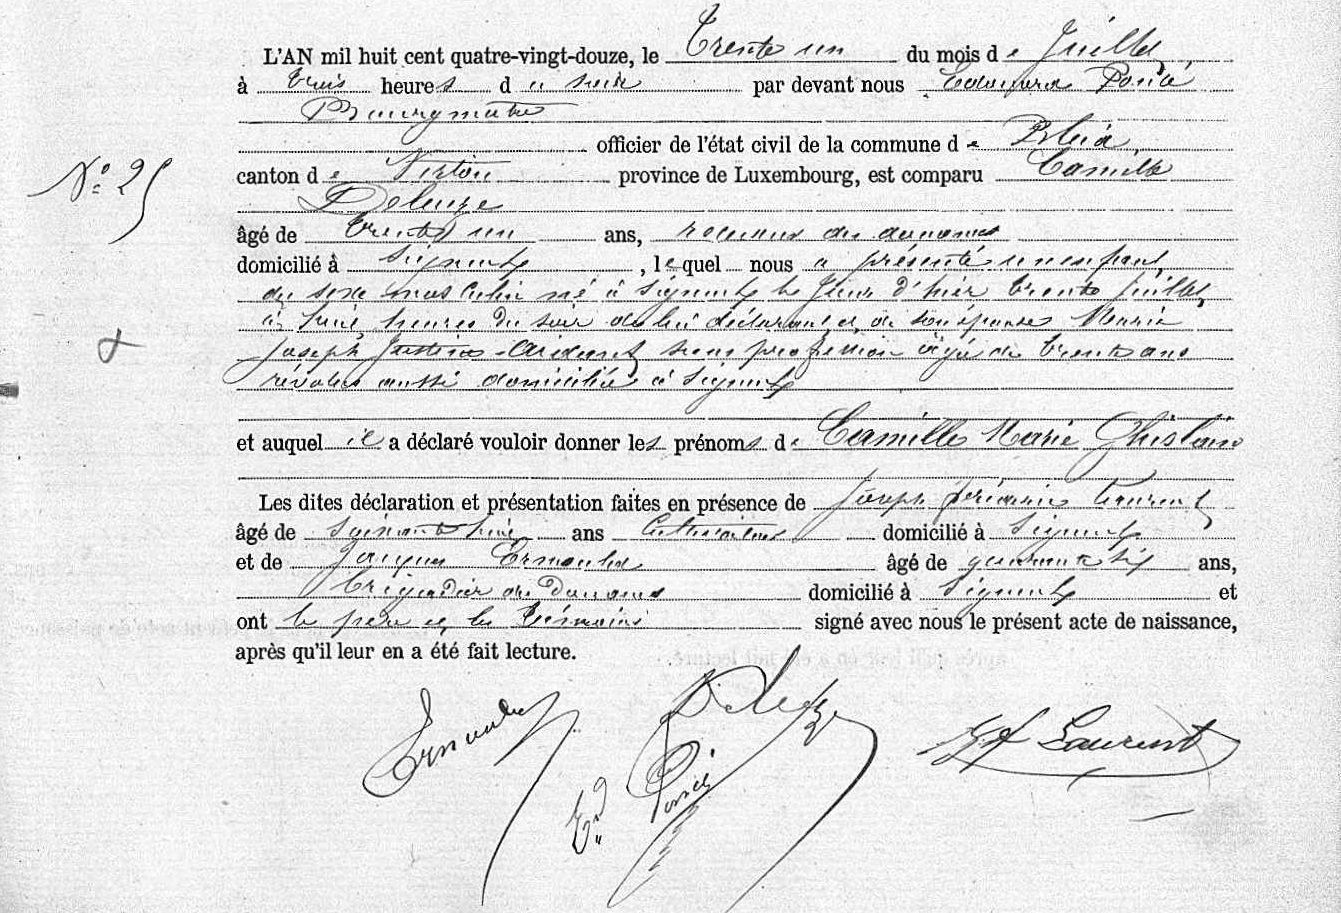 L'AN mil huit cent quatre-vingt-douze, le Trente un du mois de Juillet
à trois heures du soir par devant nous Edouard Poncé
Bourgmestre
officier de l'état civil de la commune de
N° 25
canton de Virton province de Luxembourg, est comparu Camille
Deleuze
âgé de trente un ans, receveur des douanes
domicilié à Signeulx, lequel nous a présenté un enfant
du sexe masculin né à Signeulx le jour d'hier trente juillet
à huit heures du soir de lui déclarant et de son épouse Marie
Joseph Justine sans profession âgée de trente ans
révolus aussi domiciliée à Signeulx
et auquel il a déclaré vouloir donner les prénoms de Camille Marie Ghislain
Les dites déclaration et présentation faites en présence de Joseph Laurent
âgé de soixante huit ans cultivateur domicilié à Signeulx
et de Jacques Ernould âgé de quarante six ans,
brigadier des Douanes domicilié à Signeulx et
ont le père et les témoins signé avec nous le présent acte de naissance,
après qu'il leur en a été fait lecture.
Ernould Deleuze Laurent
Ed Poncé